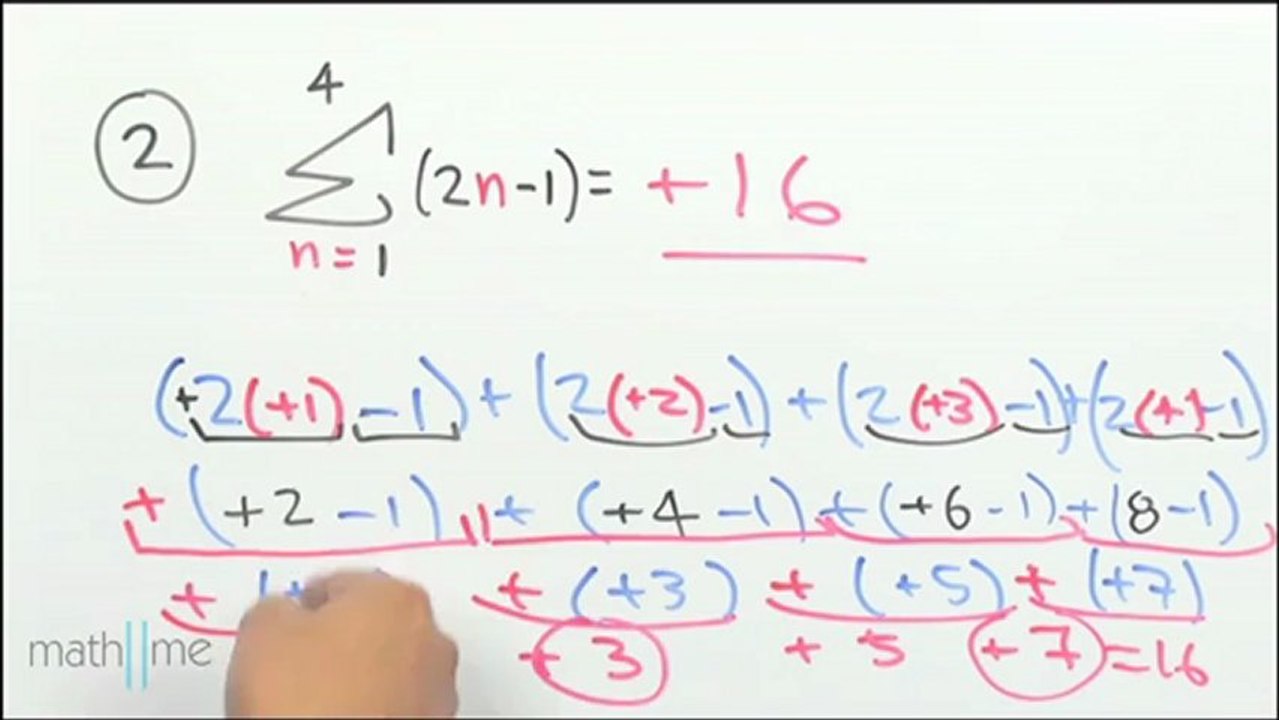 4
2 ∑ (2n-1)= +16
n=1
(+2(+1)-1)+(2(+2)-1)+(2(+3)-1)+(2(+4)-1)
+(+2-1)+(+4-1)+(+6-1)+(8-1)
+(+ +(+3)+(+5)+(+7)
+3 +5 +7=16
math||me